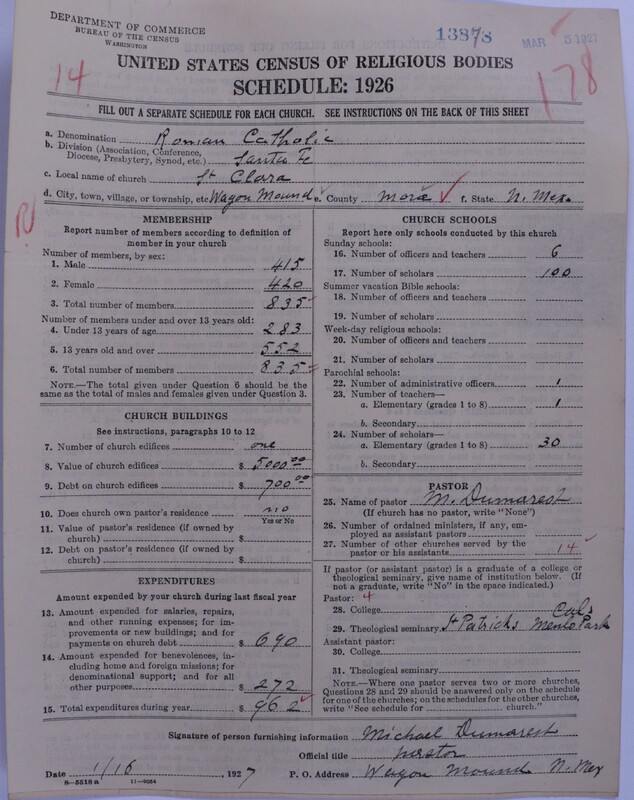 DEPARTMENT OF COMMERCE
BUREAU OF THE CENSUS
WASHINGTON
13878
MAR 5 1927
14
178
UNITED STATES CENSUS OF RELIGIOUS BODIES
SCHEDULE: 1926
FILL OUT A SEPARATE SCHEDULE FOR EACH CHURCH. SEE INSTRUCTIONS ON THE BACK OF THIS SHEET
a. Denomination Roman Catholic
b. Division (Association, Conference, Diocese, Presbytery, Synod, etc.) Santa Fe
c. Local name of church St Clara
d. City, town, village, or township, etc Wagon Mound e. County Mora f. State N. Mex.
R
MEMBERSHIP
Report number of members according to definition of
member in your church
Number of members, by sex:
1. Male 415
2. Female 420
3. Total number of members 835
Number of members under and over 13 years old:
4. Under 13 years of age 283
5. 13 years old and over 552
6. Total number of members 835
NOTE.—The total given under Question 6 should be the
same as the total of males and females given under Question 3.
CHURCH BUILDINGS
See instructions, paragraphs 10 to 12
7. Number of church edifices one
8. Value of church edifices $ 5000.00
9. Debt on church edifices $ 700.00
10. Does church own pastor's residence no
Yes or No
11. Value of pastor's residence (if owned by
church) $
12. Debt on pastor's residence (if owned by
church) $
EXPENDITURES
Amount expended by your church during last fiscal year
13. Amount expended for salaries, repairs,
and other running expenses; for im-
provements or new buildings; and for
payments on church debt $ 690
14. Amount expended for benevolences,
including home and foreign missions; for
denominational support; and for all
other purposes $ 272
15. Total expenditures during year $ 962
CHURCH SCHOOLS
Report here only schools conducted by this church
Sunday schools:
16. Number of officers and teachers 6
17. Number of scholars 100
Summer vacation Bible schools:
18. Number of officers and teachers
19. Number of scholars
Week-day religious schools:
20. Number of officers and teachers
21. Number of scholars
Parochial schools:
22. Number of administrative officers 1
23. Number of teachers—
a. Elementary (grades 1 to 8) 1
b. Secondary
24. Number of scholars—
a. Elementary (grades 1 to 8) 30
b. Secondary
PASTOR
25. Name of pastor M. Dumarest
(If church has no pastor, write "None")
26. Number of ordained ministers, if any, em-
ployed as assistant pastors
27. Number of other churches served by the
pastor or his assistants 14
If pastor (or assistant pastor) is a graduate of a college or
theological seminary, give name of institution below. (If
not a graduate, write "No" in the space indicated.)
Pastor: 4
28. College
Cal.
29. Theological seminary St Patricks Menlo Park
Assistant pastor:
30. College
31. Theological seminary
NOTE.—Where one pastor serves two or more churches,
Questions 28 and 29 should be answered only on the schedule
for one of the churches; on the schedules for the other churches,
write "See schedule for church."
Signature of person furnishing information Michael Dumarest
Official title pastor
Date 1/16 1927 P. O. Address Wagon Mound N. Mex
8-5518a 11-9054